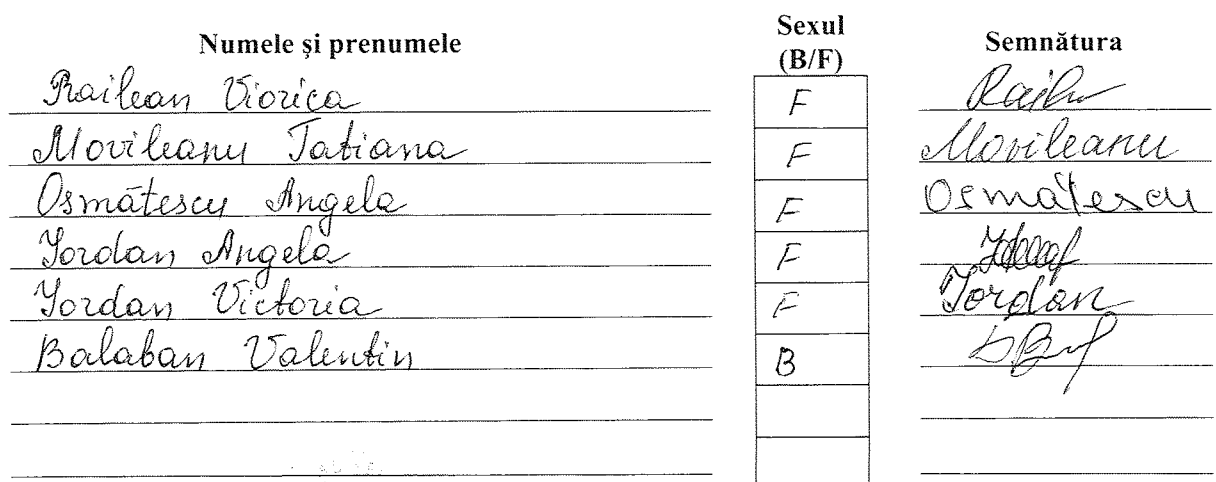 Numele și prenumele Sexul (B/F) Semnătura
Railean Viorica F Railn
Movileanu Tatiana F Movileanu
Osmătescu Angela F Osmătescu
Iordan Angela F
Iordan Victoria F Iordan
Balaban Valentin B